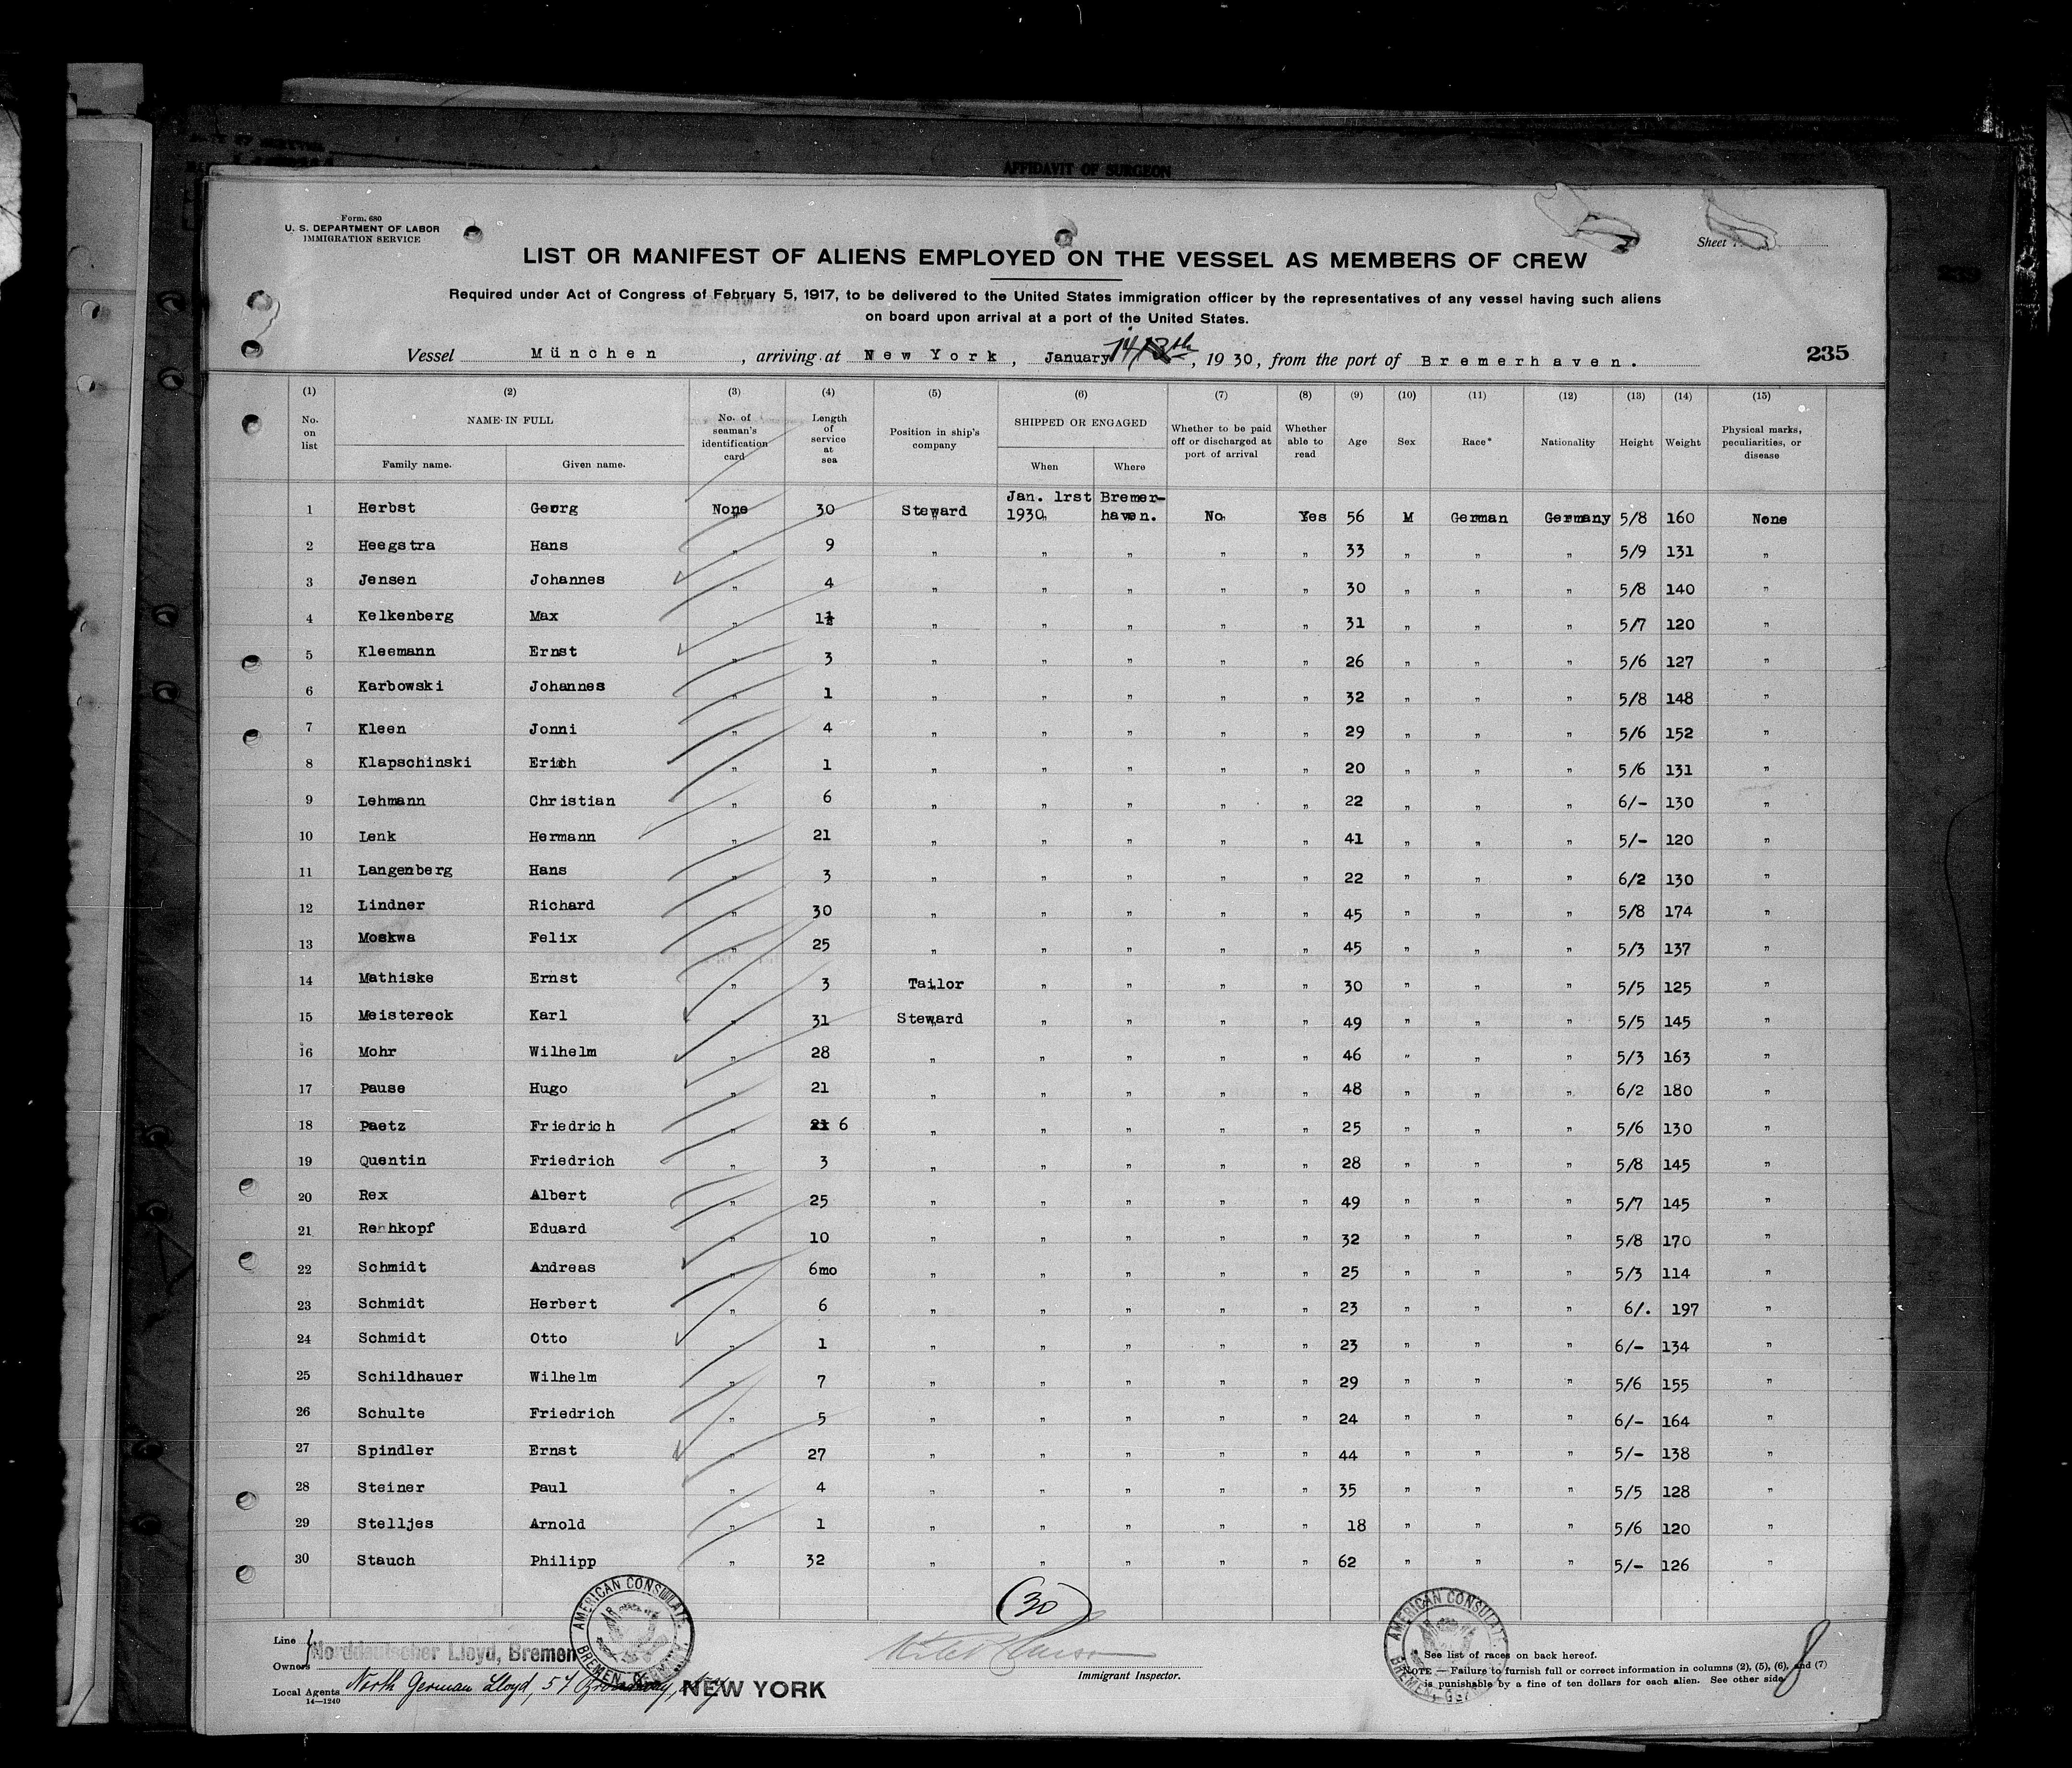 AFFIDAVIT OF SURGEON
Form 680
U. S. DEPARTMENT OF LABOR
IMMIGRATION SERVICE
Sheet
LIST OR MANIFEST OF ALIENS EMPLOYED ON THE VESSEL AS MEMBERS OF CREW
Required under Act of Congress of February 5, 1917, to be delivered to the United States immigration officer by the representatives of any vessel having such aliens
on board upon arrival at a port of the United States.
Vessel München, arriving at New York, January 14 13th, 1930, from the port of Bremerhaven.
235
(1) (2) (3) (4) (5) (6) (7) (8) (9) (10) (11) (12) (13) (14) (15)
No. on list NAME IN FULL Family name. Given name. No. of seaman's identification card Length of service at sea Position in ship's company SHIPPED OR ENGAGED When Where Whether to be paid off or discharged at port of arrival Whether able to read Age Sex Race* Nationality Height Weight Physical marks, peculiarities, or disease
1 Herbst Georg None 30 Steward Jan. 1rst 1930 Bremerhaven. No Yes 56 M German Germany 5/8 160 None
2 Heegstra Hans " 9 " " " " " 33 " " " 5/9 131 "
3 Jensen Johannes " 4 " " " " " 30 " " " 5/8 140 "
4 Kelkenberg Max " 1½ " " " " " 31 " " " 5/7 120 "
5 Kleemann Ernst " 3 " " " " " 26 " " " 5/6 127 "
6 Karbowski Johannes " 1 " " " " " 32 " " " 5/8 148 "
7 Kleen Jonni " 4 " " " " " 29 " " " 5/6 152 "
8 Klapschinski Erich " 1 " " " " " 20 " " " 5/6 131 "
9 Lehmann Christian " 6 " " " " " 22 " " " 6/- 130 "
10 Lenk Hermann " 21 " " " " " 41 " " " 5/- 120 "
11 Langenberg Hans " 3 " " " " " 22 " " " 6/2 130 "
12 Lindner Richard " 30 " " " " " 45 " " " 5/8 174 "
13 Moskwa Felix " 25 " " " " " 45 " " " 5/3 137 "
14 Mathiske Ernst " 3 Tailor " " " " 30 " " " 5/5 125 "
15 Meistereck Karl " 31 Steward " " " " 49 " " " 5/5 145 "
16 Mohr Wilhelm " 28 " " " " " 46 " " " 5/3 163 "
17 Pause Hugo " 21 " " " " " 48 " " " 6/2 180 "
18 Paetz Friedrich " 21 6 " " " " " 25 " " " 5/6 130 "
19 Quentin Friedrich " 3 " " " " " 28 " " " 5/8 145 "
20 Rex Albert " 25 " " " " " 49 " " " 5/7 145 "
21 Rehhkopf Eduard " 10 " " " " " 32 " " " 5/8 170 "
22 Schmidt Andreas " 6mo " " " " " 25 " " " 5/3 114 "
23 Schmidt Herbert " 6 " " " " " 23 " " " 6/. 197 "
24 Schmidt Otto " 1 " " " " " 23 " " " 6/- 134 "
25 Schildhauer Wilhelm " 7 " " " " " 29 " " " 5/6 155 "
26 Schulte Friedrich " 5 " " " " " 24 " " " 6/- 164 "
27 Spindler Ernst " 27 " " " " " 44 " " " 5/- 138 "
28 Steiner Paul " 4 " " " " " 35 " " " 5/5 128 "
29 Stelljes Arnold " 1 " " " " " 18 " " " 5/6 120 "
30 Stauch Philipp " 32 " " " " " 62 " " " 5/- 126 "
(30)
AMERICAN CONSULATE BREMEN, GERMANY.
AMERICAN CONSULATE BREMEN, GERMANY.
Line
Owners Norddeutscher Lloyd, Bremen
Immigrant Inspector.
Local Agents North German Lloyd, 57 Broadway, NEW YORK
14—1240
* See list of races on back hereof.
NOTE.—Failure to furnish full or correct information in columns (2), (5), (6), and (7)
is punishable by a fine of ten dollars for each alien. See other side.